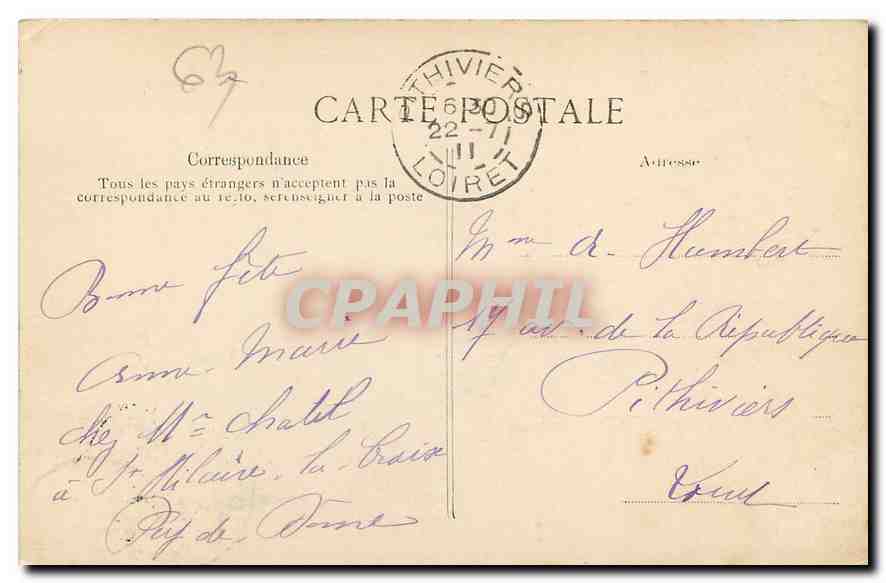 63
PITHIVIERS
6 30
22 - 7
11
LOIRET
CARTE POSTALE
Correspondance
Tous les pays étrangers n'acceptent pas la
correspondance au recto, se renseigner à la poste
Adresse
Bonne fête
Anne-Marie
chez Mr Chatel
à St Hilaire-la-Croix
Puy de-Dôme
Mme A. Humbert
17 av. de la République
Pithiviers
Loiret
CPAPHIL